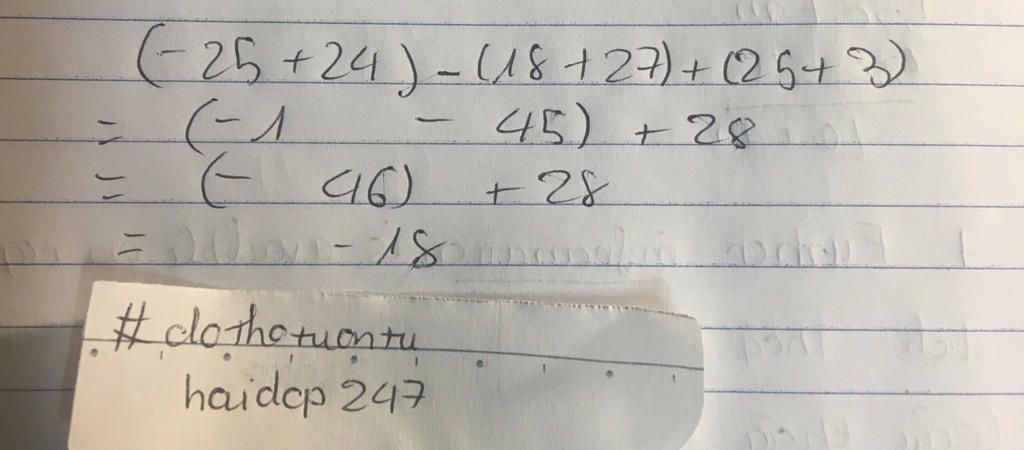 (-25+24)-(18+27)+(25+3)
= (-1 - 45) + 28
= (- 46) + 28
= -18
#dothotuontu
haidcp247